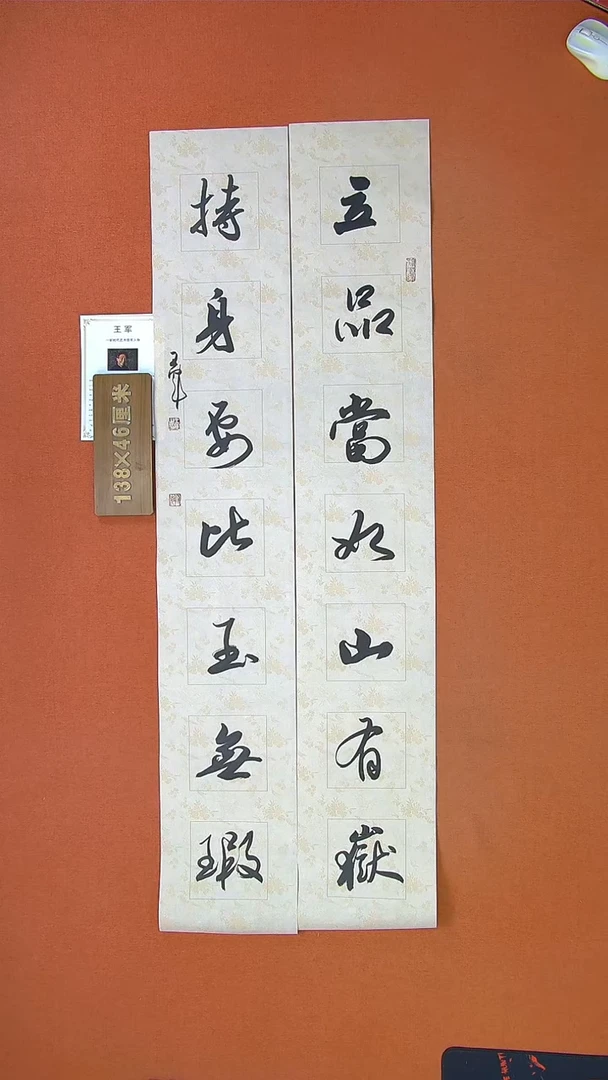 立品當如山有嶽
持身要比玉無瑕
王军
王军
138×46厘米